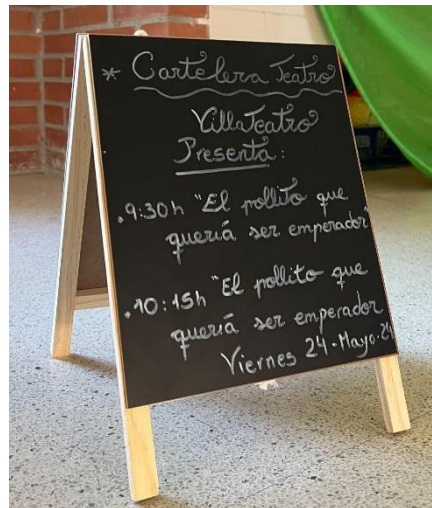 * Cartelera Teatro
VillaTeatro
Presenta:
. 9:30h "El pollito que
quería ser emperador"
. 10:15h "El pollito que
quería ser emperador
Viernes 24-Mayo-24